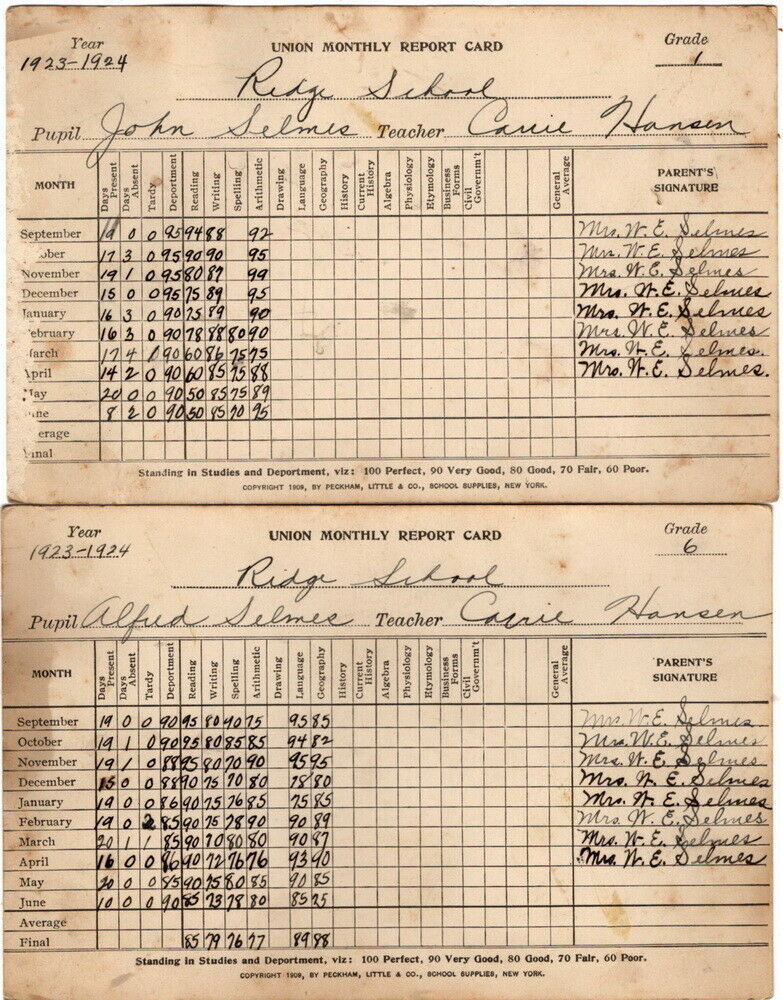 Year UNION MONTHLY REPORT CARD Grade
1923-1924 1
Ridge School
Pupil John Selmes Teacher Carrie Hansen
MONTH Days Present Days Absent Tardy Deportment Reading Writing Spelling Arithmetic Drawing Language Geography History Current History Algebra Physiology Etymology Business Forms Civil Governm't General Average PARENT'S SIGNATURE
September 19 0 0 95 94 88 92 Mrs. W. E. Selmes
ober 17 3 0 95 90 90 95 Mrs. W. E. Selmes
November 19 1 0 95 80 87 99 Mrs. W. E. Selmes
December 15 0 0 95 75 89 95 Mrs. W. E. Selmes
January 16 3 0 90 75 89 90 Mrs. W. E. Selmes
February 16 3 0 90 78 88 80 90 Mrs. W. E. Selmes
March 17 4 1 90 60 86 75 75 Mrs. W. E. Selmes.
April 14 2 0 90 60 85 75 88 Mrs. W. E. Selmes.
May 20 0 0 90 50 85 75 89
une 8 2 0 90 50 85 70 95
erage
inal
Standing in Studies and Deportment, viz: 100 Perfect, 90 Very Good, 80 Good, 70 Fair, 60 Poor.
COPYRIGHT 1909, BY PECKHAM, LITTLE & CO., SCHOOL SUPPLIES, NEW YORK.
Year UNION MONTHLY REPORT CARD Grade
1923-1924 6
Ridge School
Pupil Alfred Selmes Teacher Carrie Hansen
MONTH Days Present Days Absent Tardy Deportment Reading Writing Spelling Arithmetic Drawing Language Geography History Current History Algebra Physiology Etymology Business Forms Civil Governm't General Average PARENT'S SIGNATURE
September 19 0 0 90 95 80 90 75 95 85 Mrs. W. E. Selmes
October 19 1 0 90 95 80 85 85 94 82 Mrs. W. E. Selmes
November 19 1 0 88 95 80 70 90 95 95 Mrs. W. E. Selmes
December 15 0 0 88 90 75 70 80 78 80 Mrs. W. E. Selmes
January 19 0 0 86 90 75 76 85 75 85 Mrs. W. E. Selmes
February 19 0 2 85 90 75 78 90 90 89 Mrs. W. E. Selmes
March 20 1 1 85 90 70 80 80 90 87 Mrs. W. E. Selmes
April 16 0 0 86 90 72 76 76 93 90 Mrs. W. E. Selmes
May 20 0 0 85 90 75 80 85 90 85
June 10 0 0 90 85 73 78 80 85 75
Average
Final 85 79 76 77 89 88
Standing in Studies and Deportment, viz: 100 Perfect, 90 Very Good, 80 Good, 70 Fair, 60 Poor.
COPYRIGHT 1909, BY PECKHAM, LITTLE & CO., SCHOOL SUPPLIES, NEW YORK.